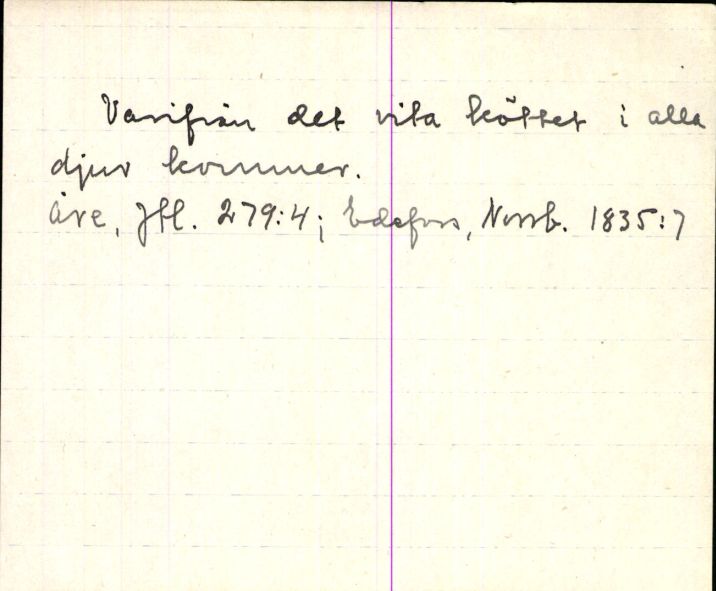 Varifrån det vita köttet i alla
djur kommer.
Åre, Jtl. 279:4; Edefors, Norrb. 1835:7